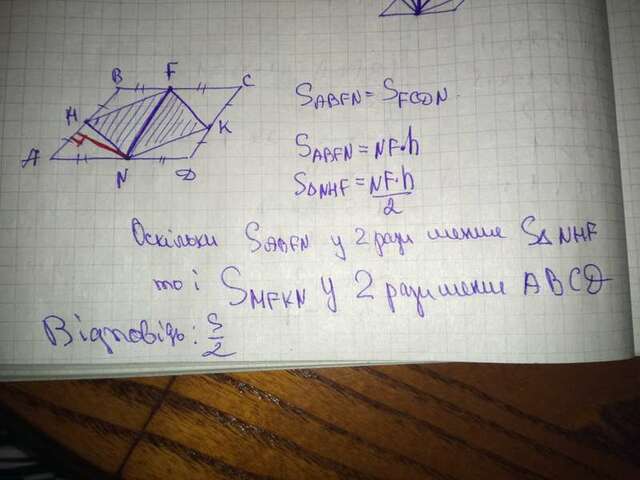 A
M
B
N
F
D
K
C
S_ABFN = S_FCDN.
S_ABFN = NF·h
S_△NHF = NF·h/2
Оскільки S_ABFN у 2 рази менше S_△NHF
то і S_MFKN у 2 рази менше ABCD
Відповідь: S/2